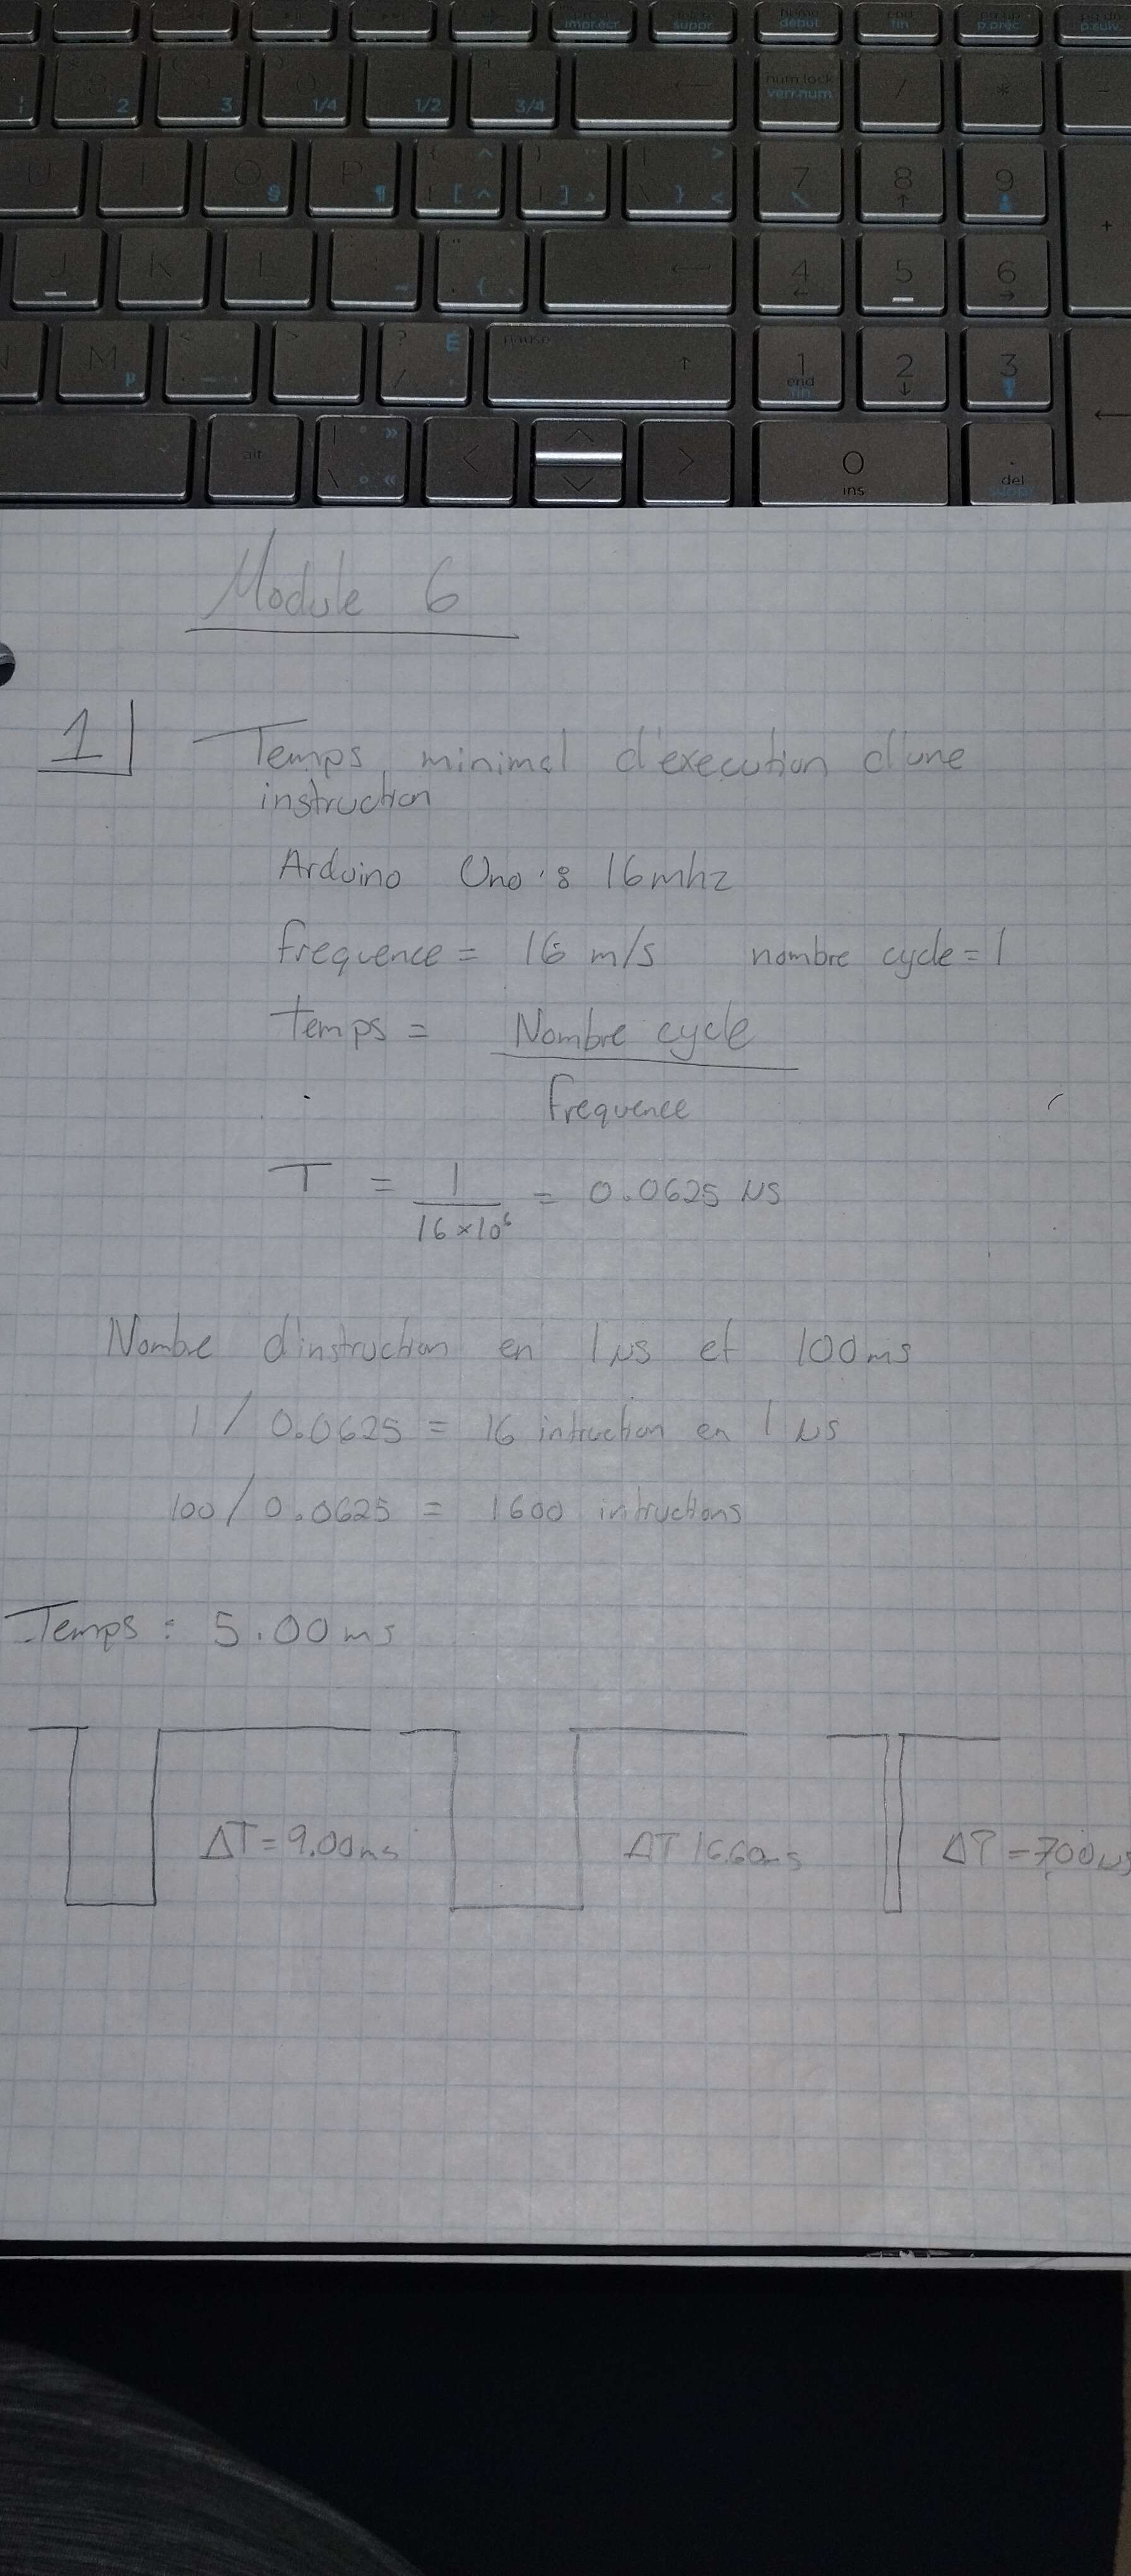 impr.écr suppr home début end fin pg up p.préc pg dn p.suiv
2 3 1/4 1/2 3/4 num lock verr.num / * -
U I O § P ¶ [ ^ ] } > < 7 8 9 +
J K L 4 5 6
M µ ? É / pause 1 end fin 2 3
alt » « < > 0 ins . del suppr
Module 6
1 Temps minimal d'execution d'une
instruction
Arduino Uno : 16mhz
frequence = 16 m/s nombre cycle = 1
temps = Nombre cycle
frequence
T = 1 / 16×10⁶ = 0.0625 µs
Nombre d'instruction en 1µs et 100ms
1 / 0.0625 = 16 intruction en 1 µs
100 / 0.0625 = 1600 intructions
Temps : 5.00ms
ΔT = 9.00ms ΔT 16.60ms ΔT = 700µs